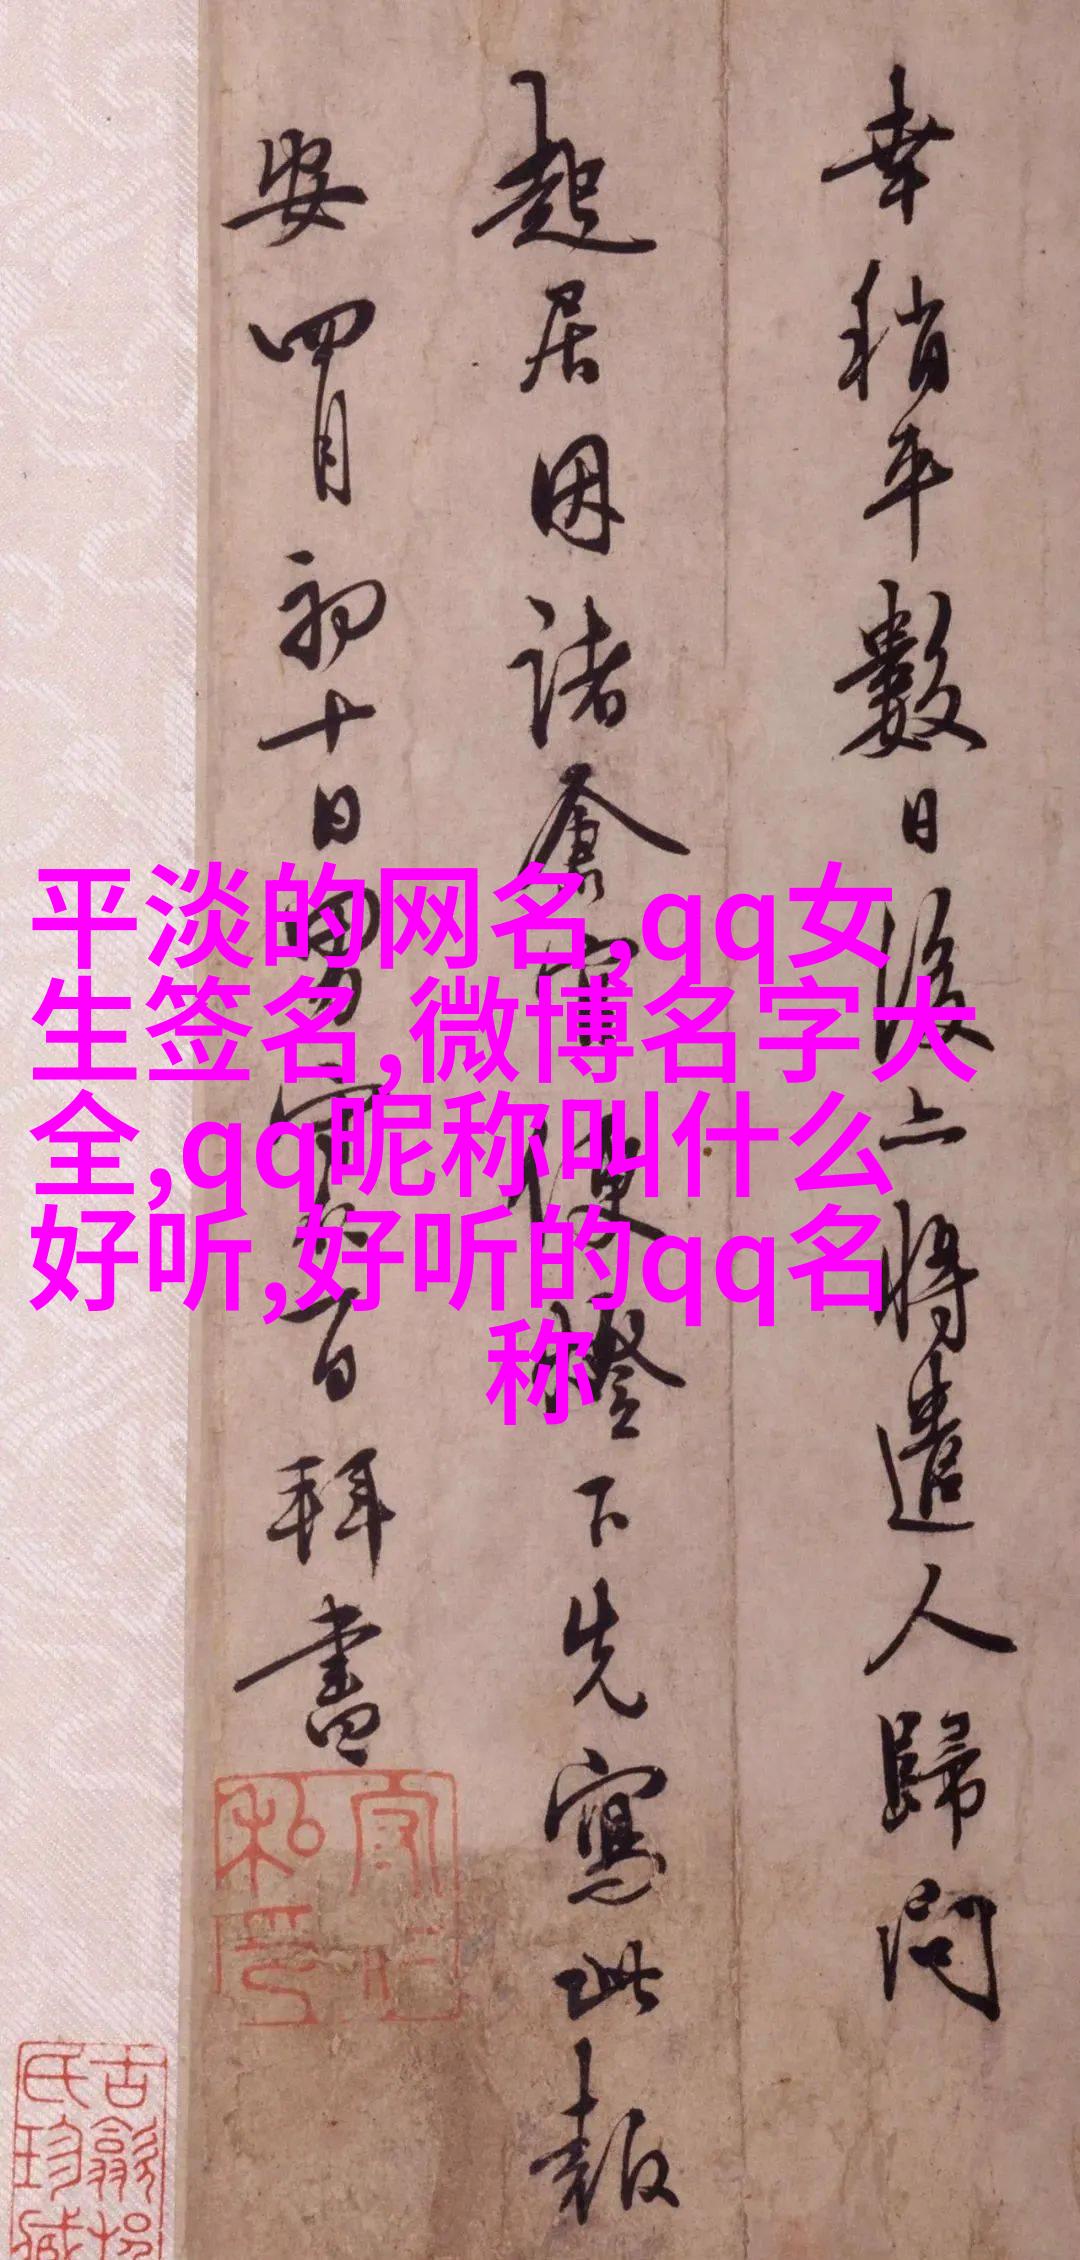 平淡的网名,qq女
生签名,微博名字大
全,qq昵称叫什么
好听,好听的qq名
称
幸稍平數日後上將遣人歸問
起居因諸倉官便燈下先寫此報
安四月初十日男守百拜書
私印
古歙
氏珍藏